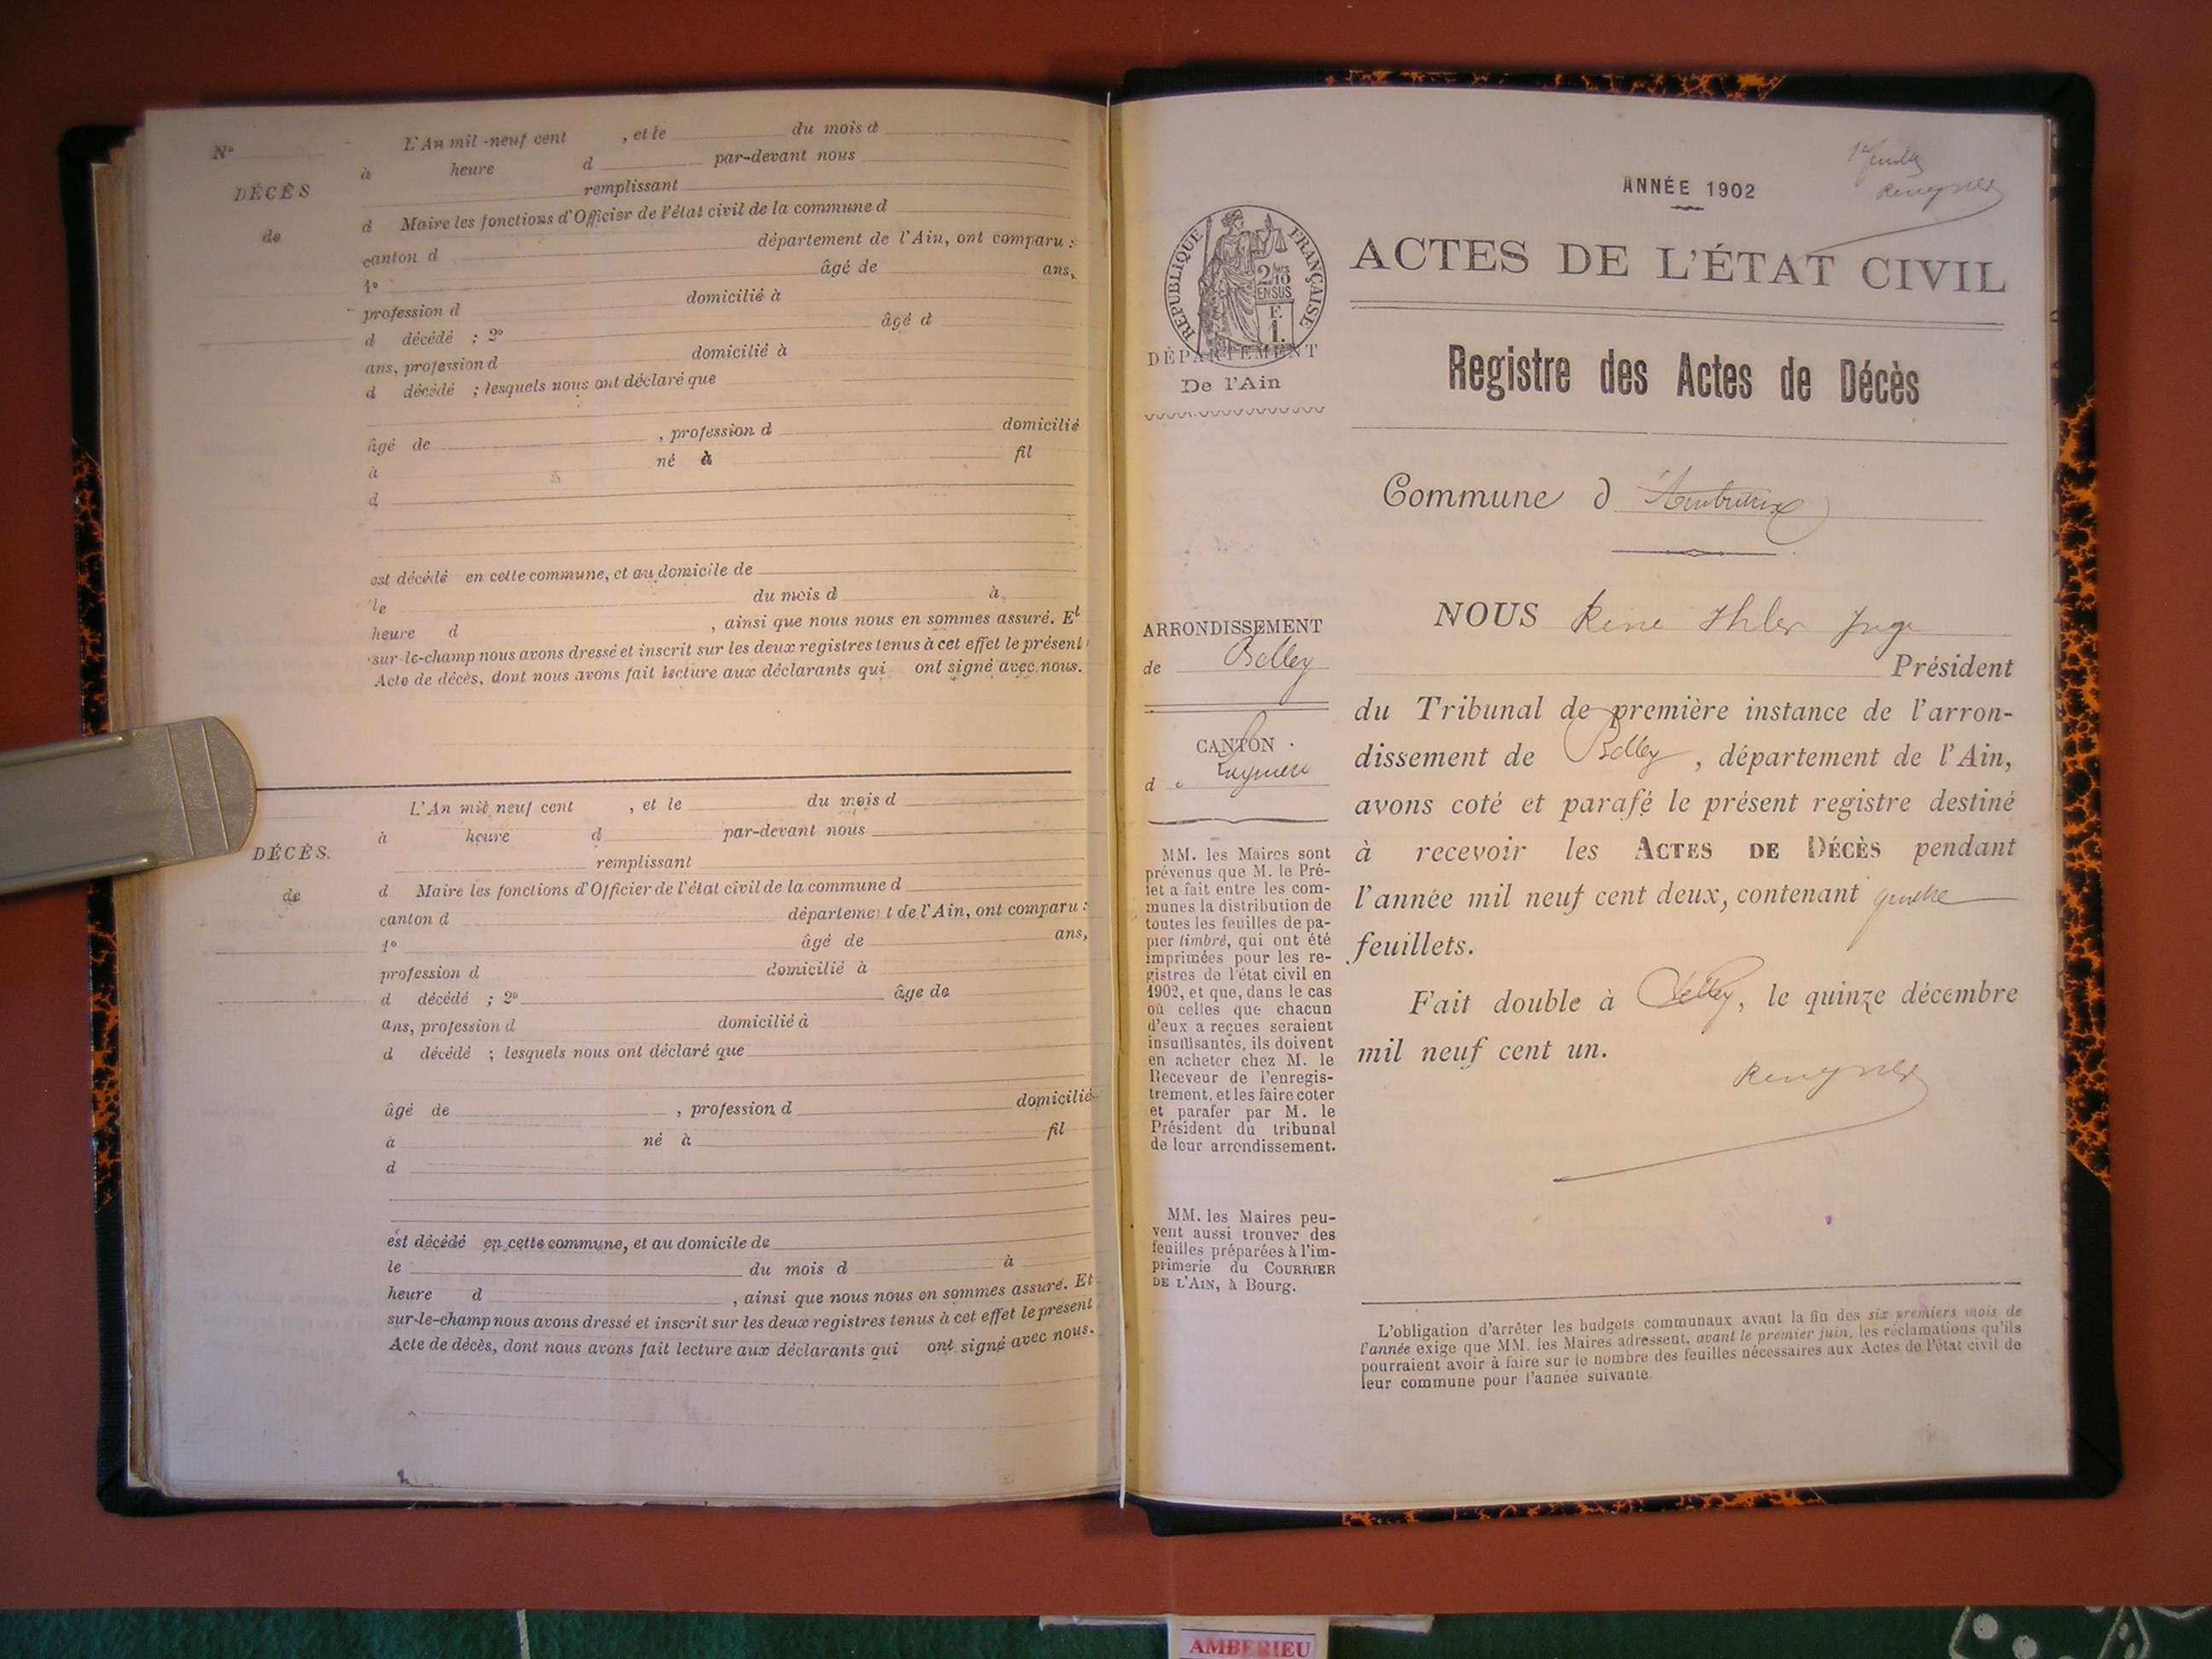 N°
L'An mil-neuf cent , et le du mois d
à heure d par-devant nous
DÉCÈS
remplissant
de
d Maire les fonctions d'Officier de l'état civil de la commune d
canton d département de l'Ain, ont comparu :
1° âgé de ans,
profession d domicilié à
d décédé ; 2° âgé d
ans, profession d domicilié à
d décédé ; lesquels nous ont déclaré que
âgé de , profession d domicilié
à né à fil
d
est décédé en cette commune, et au domicile de
le du mois d à
heure d , ainsi que nous nous en sommes assuré. Et
sur-le-champ nous avons dressé et inscrit sur les deux registres tenus à cet effet le présent
Acte de décès, dont nous avons fait lecture aux déclarants qui ont signé avec nous.
L'An mil neuf cent , et le du mois d
à heure d par-devant nous
DÉCÈS.
remplissant
de
d Maire les fonctions d'Officier de l'état civil de la commune d
canton d département de l'Ain, ont comparu :
1° âgé de ans,
profession d domicilié à
d décédé ; 2° âge de
ans, profession d domicilié à
d décédé ; lesquels nous ont déclaré que
âgé de , profession d domicilié
à né à fil
d
est décédé en cette commune, et au domicile de
le du mois d à
heure d , ainsi que nous nous en sommes assuré. Et
sur-le-champ nous avons dressé et inscrit sur les deux registres tenus à cet effet le présent
Acte de décès, dont nous avons fait lecture aux déclarants qui ont signé avec nous.
RÉPUBLIQUE FRANÇAISE
2/10
EN SUS
F.
1.
DÉPARTEMENT
De l'Ain
ARRONDISSEMENT
de Belley
CANTON
d
MM. les Maires sont
prévenus que M. le Pré-
fet a fait entre les com-
munes la distribution de
toutes les feuilles de pa-
pier timbré, qui ont été
imprimées pour les re-
gistres de l'état civil en
1902, et que, dans le cas
où celles que chacun
d'eux a reçues seraient
insuffisantes, ils doivent
en acheter chez M. le
Receveur de l'enregis-
trement, et les faire coter
et parafer par M. le
Président du tribunal
de leur arrondissement.
MM. les Maires peu-
vent aussi trouver des
feuilles préparées à l'im-
primerie du COURRIER
DE L'AIN, à Bourg.
ANNÉE 1902
ACTES DE L'ÉTAT CIVIL
Registre des Actes de Décès
Commune d
NOUS René Ihler Juge
Président
du Tribunal de première instance de l'arron-
dissement de Belley , département de l'Ain,
avons coté et parafé le présent registre destiné
à recevoir les ACTES DE DÉCÈS pendant
l'année mil neuf cent deux, contenant
feuillets.
Fait double à Belley, le quinze décembre
mil neuf cent un.
L'obligation d'arrêter les budgets communaux avant la fin des six premiers mois de
l'année exige que MM. les Maires adressent, avant le premier juin, les réclamations qu'ils
pourraient avoir à faire sur le nombre des feuilles nécessaires aux Actes de l'état civil de
leur commune pour l'année suivante.
AMBERIEU